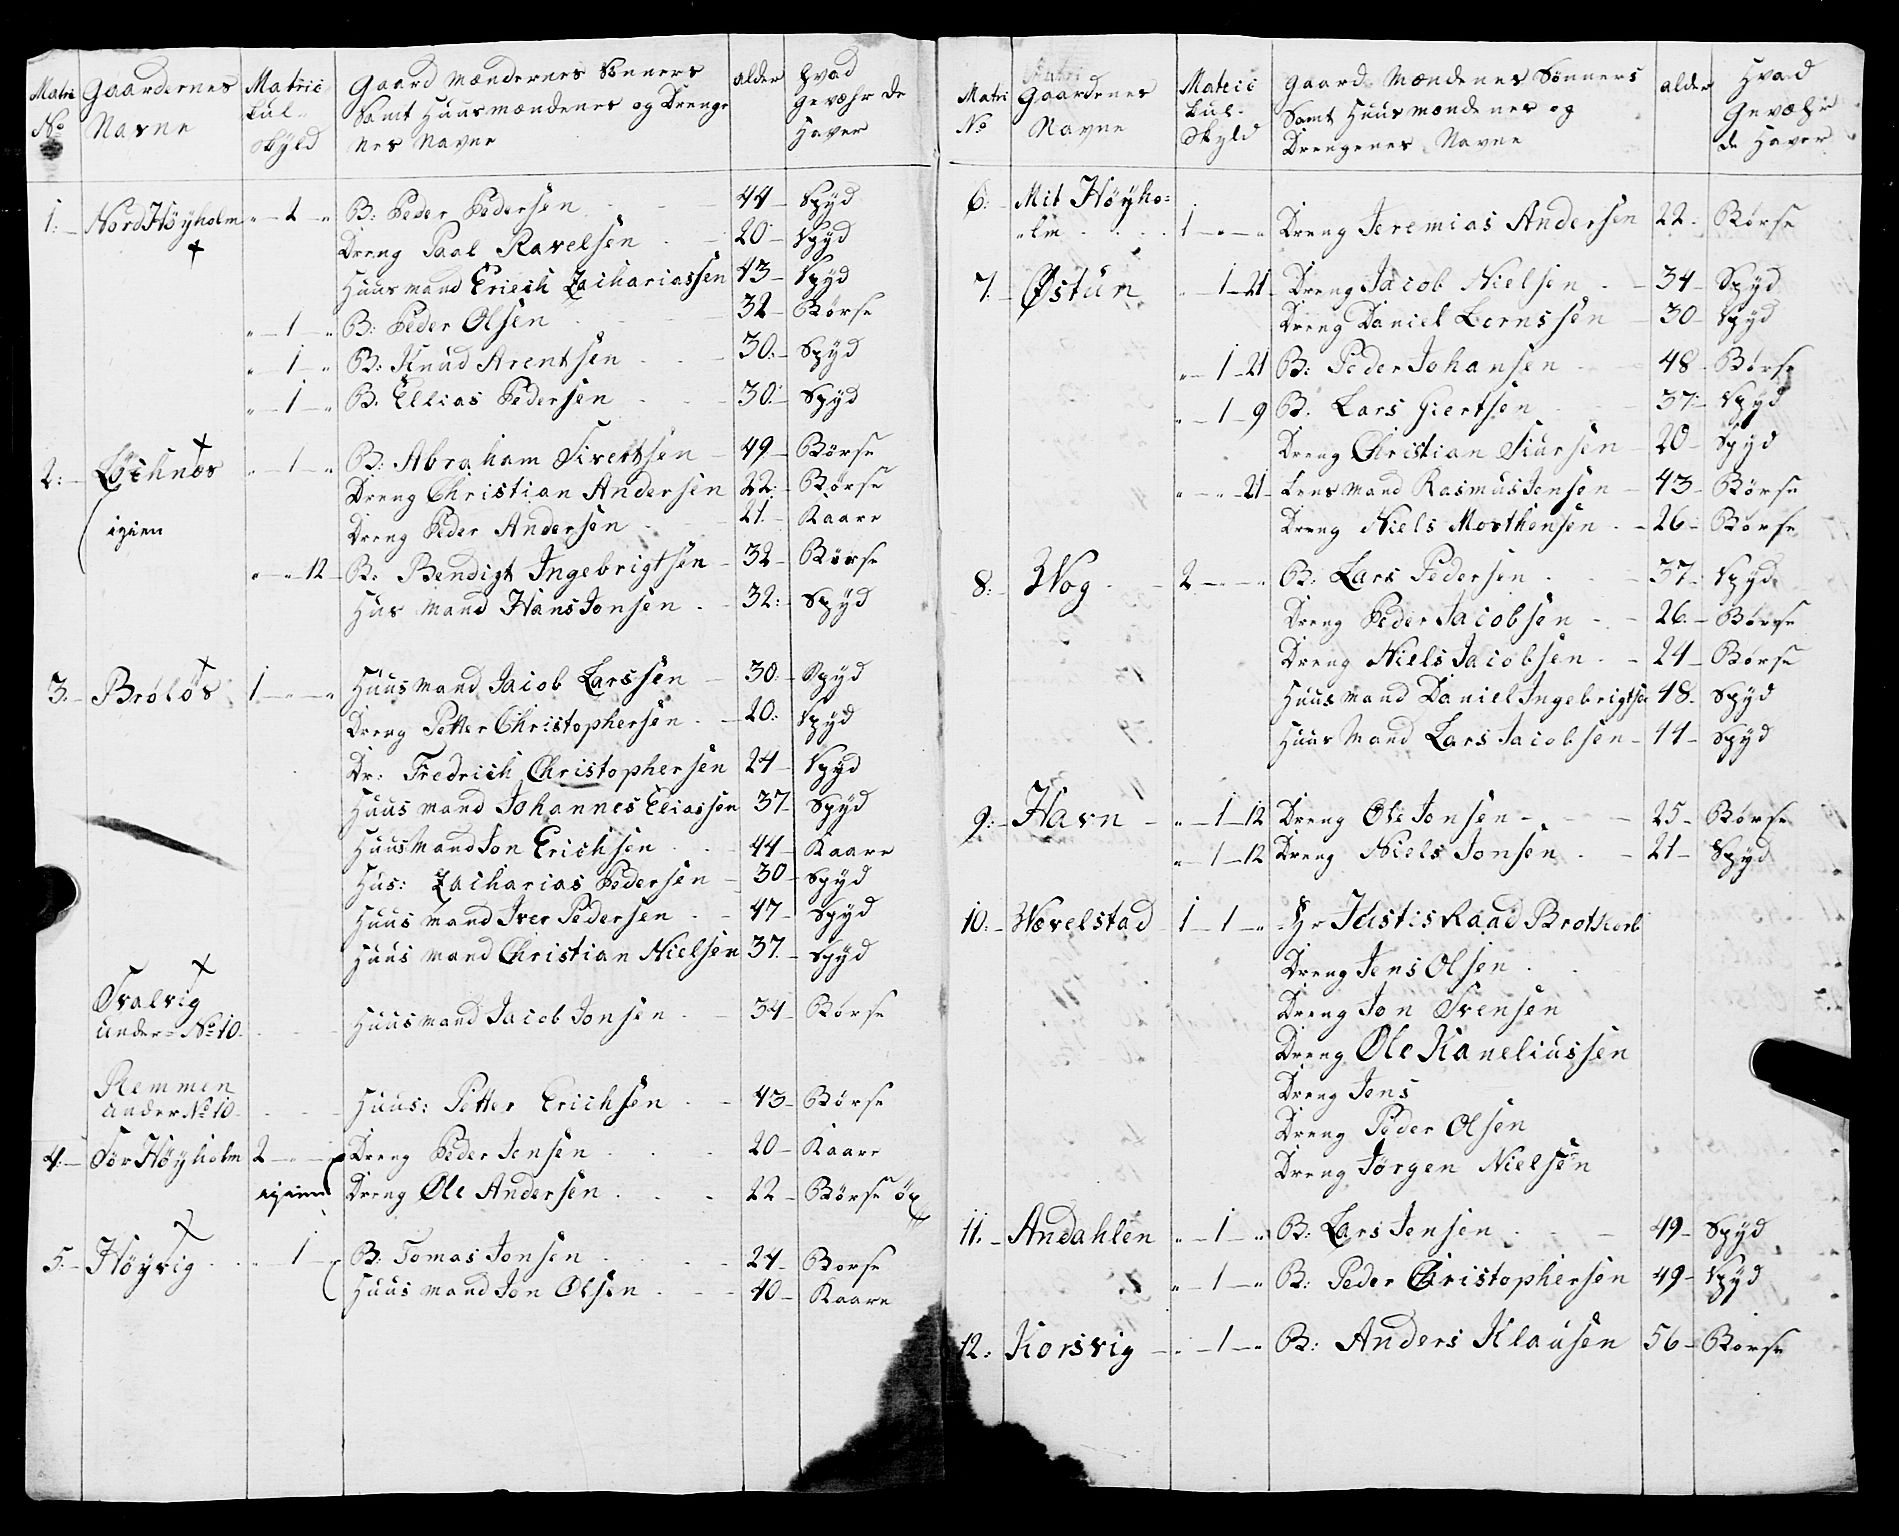 Matri Gaardernes Matric Gaard Mændernes Sønners alder hvad
No Navne kul- Samt Huusmændenes og Drenge Gevæhr de
skyld nes Navne Haver
1. Nord Høyholm " 2 " B: Peder Pedersen 44 Spyd
Dreng Paal Ravelsen 20 Spyd
Huusmand Eriech Zachariassen 43 Spyd
" 1 " B: Peder Olsen 32 Børse
" 1 " B: Knud Arentsen 30 Spyd
" 1 " B. Ellias Pedersen 30 Spyd
2: Løchnæs " 1 " B: Abraham Sivertsen 49 Børse
Dreng Christian Andersen 22 Børse
igien Dreng Peder Andersen 21 Kaare
" " 12 B. Bendigt Ingebrigtsen 32 Børse
Hus mand Hans Jonsen 32: Spyd
3. Brøløs 1 " " Huusmand Jacob Larssen 30: Spyd
Dreng Petter Christophersen 20: Spyd
Dr: Fredrich Christophersen 24 Spyd
Huus mand Johannes Eliassen 37 Spyd
Huusmand Jon Erichsen 44 Kaare
Hus: Zacharias Pedersen 30 Spyd
Huus mand Iver Pedersen 47 Spyd
Huus mand Christian Nielsen 37 Spyd
Svalvig
under No 10. Huusmand Jacob Jonsen 34 Børse
Remmen
under No 10. Huus: Petter Erichsen 43 Børse
4. Sør Høyholm 2 " Dreng Peder Jensen 20 Kaare
igien Dreng Ole Andersen 22 Børse öx
5. Høyvig " 1 B. Tomas Jonsen 24 Børse
Huus mand Jon Olsen 40 Kaare
Matri Gaardenes Matric Gaard Mændenes Sønners alder Hvad
No Navne kul- Samt Huusmændenes og Gevæhr
Skyld Drengenes Navne de Haver
6: Mit Høyho=
lm 1 " " Dreng Jeremias Andersen 22. Børse
7. Østun " 1 21 Dreng Jacob Nielsen 34 Spyd
Dreng Daniel Lornssen 30 Spyd
" 1 21 B: Peder Johansen 48 Børse
" 1 9 B. Lars Giertsen 37 Spyd
Dreng Christian Siursen 20 Spyd
" " 21 Lensmand Rasmus Jensen 43 Børse
Dreng Niels Morthensen 26 Børse
8: Wog 2 " " B. Lars Pedersen 37 Spyd
Dreng Peder Jacobsen 26. Børse
Dreng Niels Jacobsen 24 Børse
Huusmand Daniel Ingebrigtsen 48. Spyd
Huus Mand Lars Jacobsen 44 Spyd
9: Havn " 1 12 Dreng Ole Jonsen 25 Børse
" 1 12 Dreng Niels Jonsen 21 Spyd
10: Wævelstad 1 1 " Hr Justis Raad Brotkorb
Dreng Jens Olsen
Dreng Jon Svensen
Dreng Ole Kaneliussen
Dreng Jens
Dreng Peder Olsen
Dreng Jørgen Nielsen
11. Andahlen " 1 " B: Lars Jensen 49 Spyd
" 1 " B: Peder Christophersen 49 Spyd
12: Korsvig " 1 " B: Anders Klausen 56 Børse